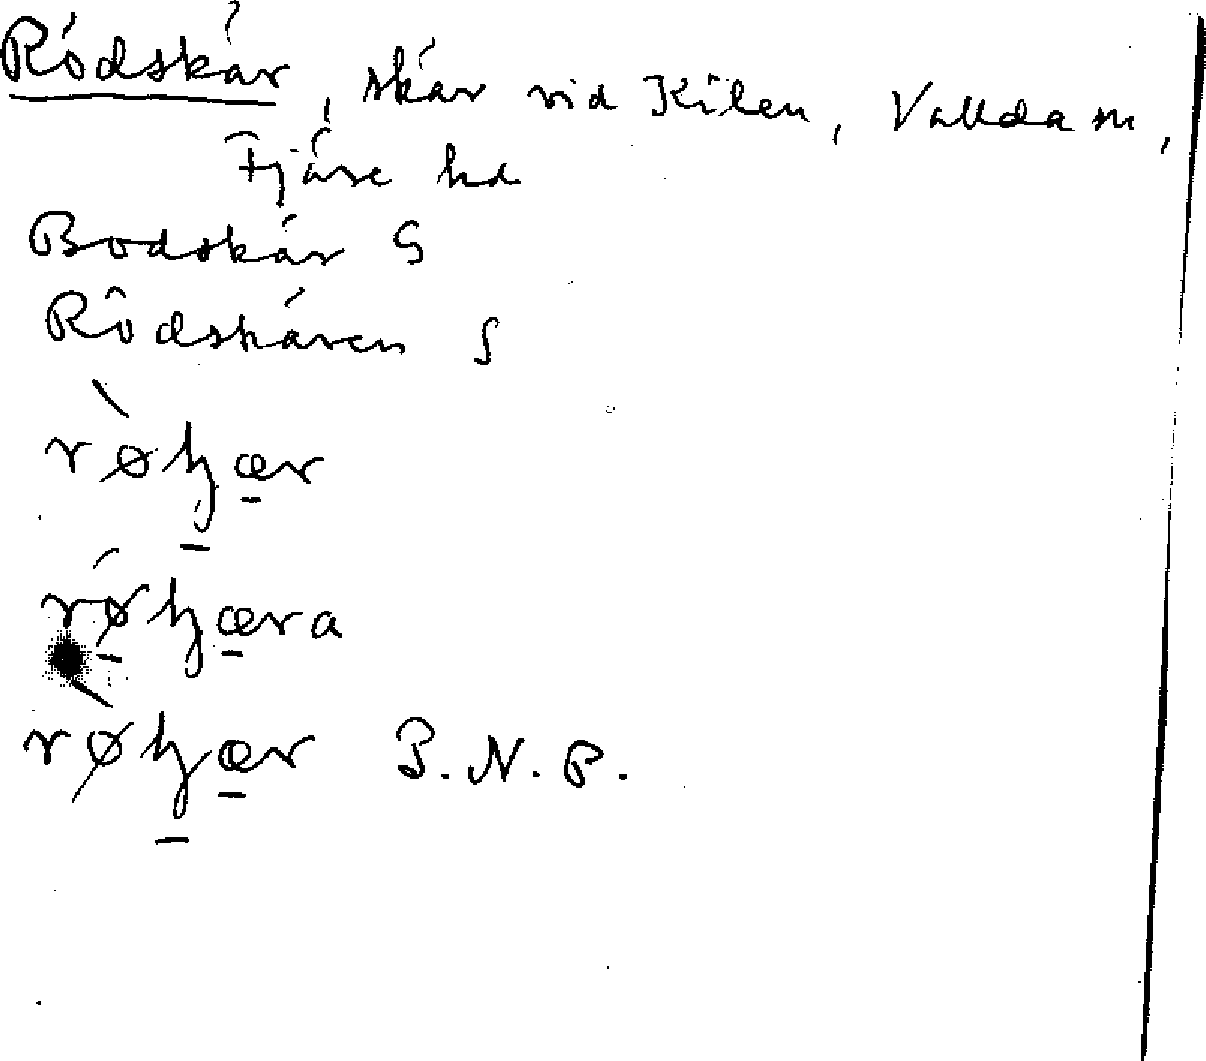 Rödskär, skär vid Kilen, Vallda sn,
Fjäre hd
Bodskär G
Rödskären S
røʜær
røʜæra
røʜær P.N.P.